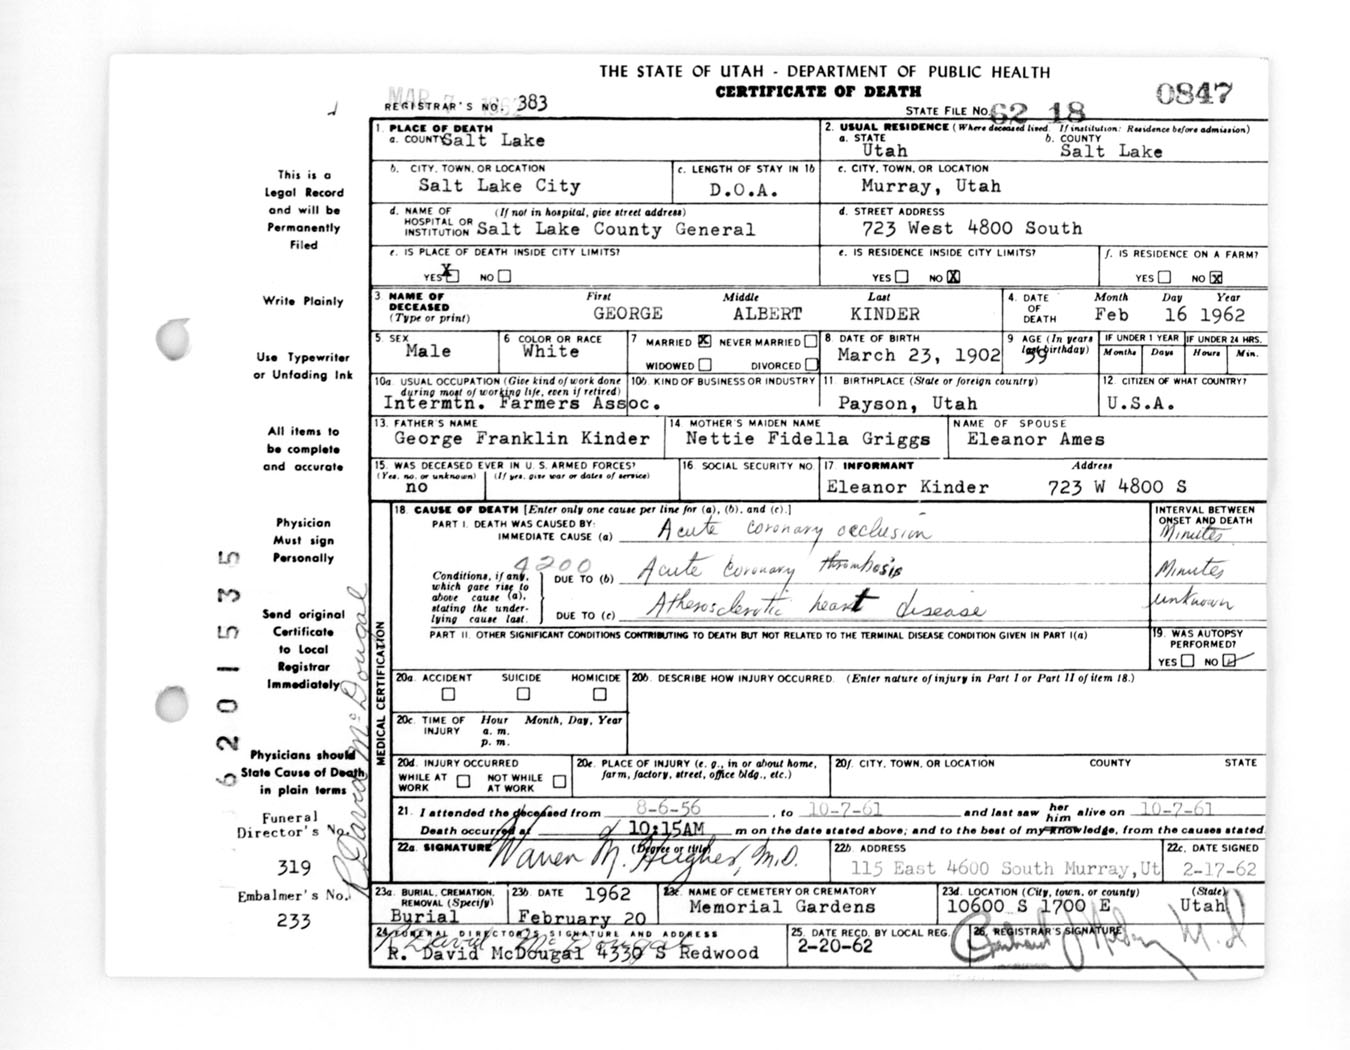 THE STATE OF UTAH - DEPARTMENT OF PUBLIC HEALTH
CERTIFICATE OF DEATH
0847
REGISTRAR'S NO. 383
STATE FILE NO. 62 18
1. PLACE OF DEATH
a. COUNTY Salt Lake
2. USUAL RESIDENCE (Where deceased lived. If institution: Residence before admission)
a. STATE Utah
b. COUNTY Salt Lake
b. CITY, TOWN, OR LOCATION
Salt Lake City
c. LENGTH OF STAY IN 1b
D.O.A.
c. CITY, TOWN, OR LOCATION
Murray, Utah
d. NAME OF HOSPITAL OR INSTITUTION (If not in hospital, give street address)
Salt Lake County General
d. STREET ADDRESS
723 West 4800 South
e. IS PLACE OF DEATH INSIDE CITY LIMITS?
YES X NO
e. IS RESIDENCE INSIDE CITY LIMITS?
YES NO X
f. IS RESIDENCE ON A FARM?
YES NO X
3. NAME OF DECEASED (Type or print)
First Middle Last
GEORGE ALBERT KINDER
4. DATE OF DEATH
Month Day Year
Feb 16 1962
5. SEX
Male
6. COLOR OR RACE
White
7. MARRIED X NEVER MARRIED
WIDOWED DIVORCED
8. DATE OF BIRTH
March 23, 1902
9. AGE (In years last birthday)
59
IF UNDER 1 YEAR
Months Days
IF UNDER 24 HRS.
Hours Min.
10a. USUAL OCCUPATION (Give kind of work done during most of working life, even if retired)
10b. KIND OF BUSINESS OR INDUSTRY
Intermtn. Farmers Assoc.
11. BIRTHPLACE (State or foreign country)
Payson, Utah
12. CITIZEN OF WHAT COUNTRY?
U.S.A.
13. FATHER'S NAME
George Franklin Kinder
14. MOTHER'S MAIDEN NAME
Nettie Fidella Griggs
NAME OF SPOUSE
Eleanor Ames
15. WAS DECEASED EVER IN U. S. ARMED FORCES?
(Yes, no, or unknown) (If yes, give war or dates of service)
no
16. SOCIAL SECURITY NO.
17. INFORMANT Address
Eleanor Kinder 723 W 4800 S
18. CAUSE OF DEATH [Enter only one cause per line for (a), (b), and (c).]
INTERVAL BETWEEN ONSET AND DEATH
PART I. DEATH WAS CAUSED BY:
IMMEDIATE CAUSE (a) Acute coronary occlusion Minutes
4200
Conditions, if any, which gave rise to above cause (a), stating the underlying cause last.
DUE TO (b) Acute coronary thrombosis Minutes
DUE TO (c) Atherosclerotic heart disease unknown
PART II. OTHER SIGNIFICANT CONDITIONS CONTRIBUTING TO DEATH BUT NOT RELATED TO THE TERMINAL DISEASE CONDITION GIVEN IN PART I(a)
19. WAS AUTOPSY PERFORMED?
YES NO
20a. ACCIDENT SUICIDE HOMICIDE
20b. DESCRIBE HOW INJURY OCCURRED. (Enter nature of injury in Part I or Part II of item 18.)
20c. TIME OF INJURY Hour a. m. p. m. Month, Day, Year
20d. INJURY OCCURRED
WHILE AT WORK NOT WHILE AT WORK
20e. PLACE OF INJURY (e. g., in or about home, farm, factory, street, office bldg., etc.)
20f. CITY, TOWN, OR LOCATION COUNTY STATE
21. I attended the deceased from 8-6-56, to 10-7-61 and last saw her him alive on 10-7-61
Death occurred at 10:15AM m on the date stated above; and to the best of my knowledge, from the causes stated
22a. SIGNATURE (Degree or title)
Warren M. Hughes, M.D.
22b. ADDRESS
115 East 4600 South Murray, Ut
22c. DATE SIGNED
2-17-62
23a. BURIAL, CREMATION, REMOVAL (Specify)
Burial
23b. DATE 1962
February 20
23c. NAME OF CEMETERY OR CREMATORY
Memorial Gardens
23d. LOCATION (City, town, or county) (State)
10600 S 1700 E Utah
24. FUNERAL DIRECTOR'S SIGNATURE AND ADDRESS
R. David McDougal
R. David McDougal 4330 S Redwood
25. DATE RECD. BY LOCAL REG.
2-20-62
26. REGISTRAR'S SIGNATURE
MEDICAL CERTIFICATION
This is a
Legal Record
and will be
Permanently
Filed
Write Plainly
Use Typewriter
or Unfading Ink
All items to
be complete
and accurate
Physician
Must sign
Personally
Send original
Certificate
to Local
Registrar
Immediately
Physicians should
State Cause of Death
in plain terms
Funeral
Director's No.
319
Embalmer's No.
233
R. David McDougal
620153 5